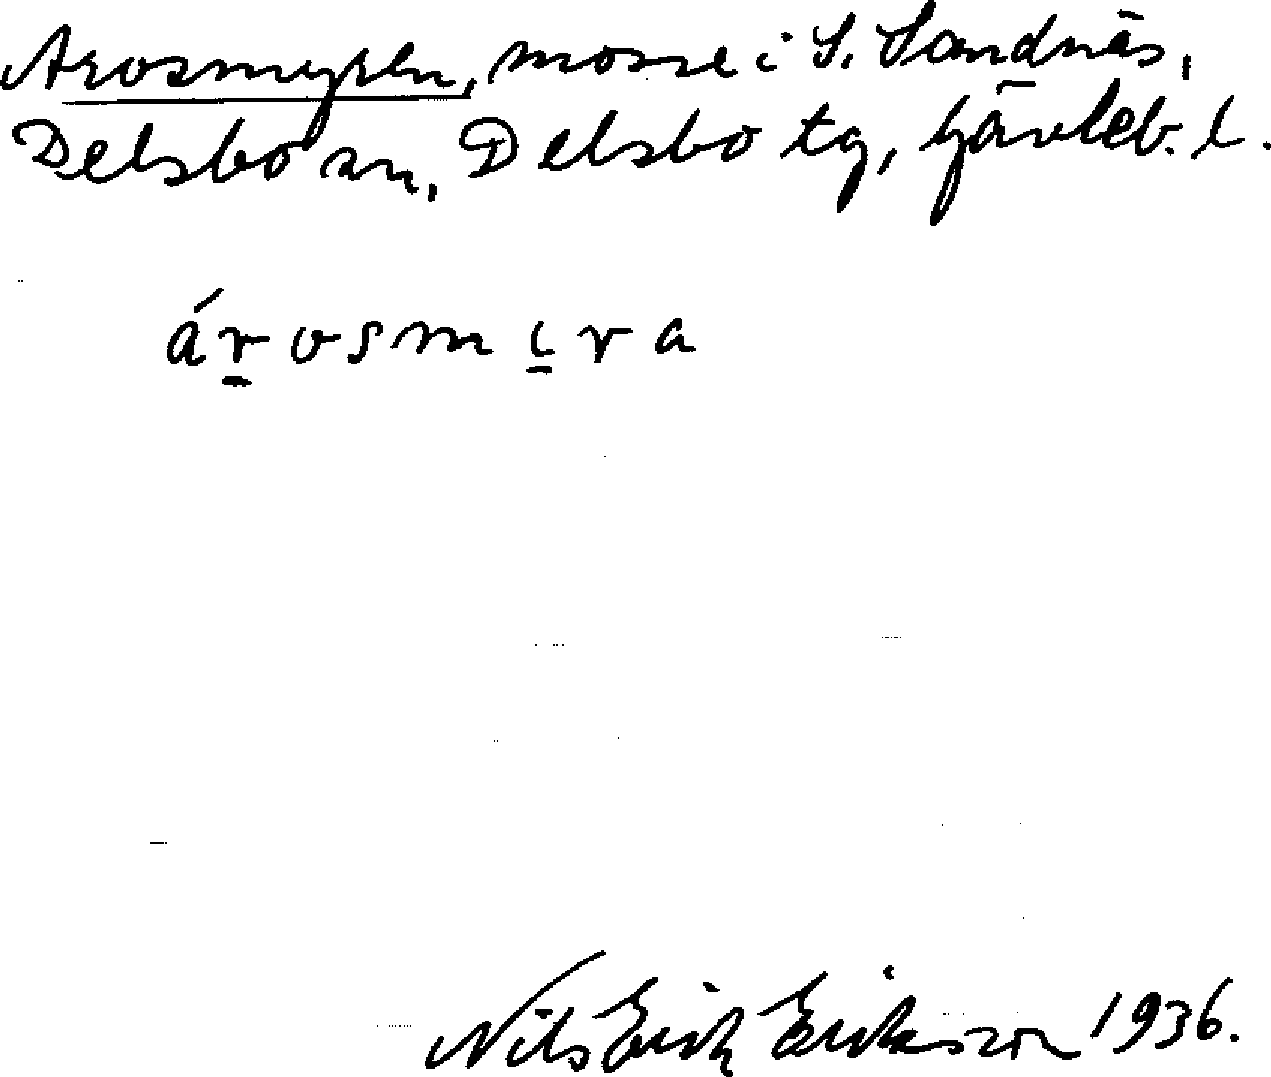 Arosmyren, mosse i S. Sandnäs,
Delsbo sn, Delsbo tg, Gävleb. l.
árosmıra
Nils Erik Eriksson 1936.